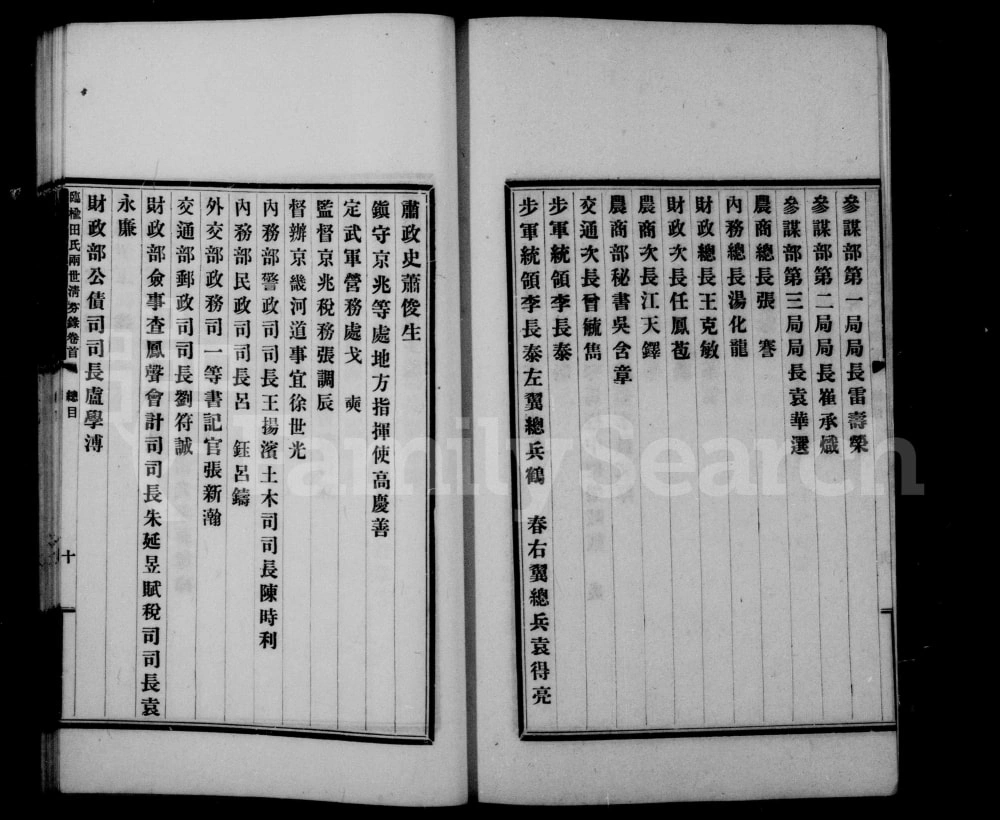 參謀部第一局局長雷壽榮
參謀部第二局局長崔承熾
參謀部第三局局長袁華選
農商總長張　謇
內務總長湯化龍
財政總長王克敏
財政次長任鳳苞
農商次長江天鐸
農商部秘書吳含章
交通次長曾毓雋
步軍統領李長泰
步軍統領李長泰左翼總兵鶴　春右翼總兵袁得亮
肅政史蕭俊生
鎭守京兆等處地方指揮使高慶善
定武軍營務處戈　奭
監督京兆稅務張調辰
督辦京畿河道事宜徐世光
內務部警政司司長王揚濱土木司司長陳時利
內務部民政司司長呂　鈺呂鑄
外交部政務司一等書記官張新瀚
交通部郵政司司長劉符誠
財政部僉事查鳳聲會計司司長朱延昱賦稅司司長袁
永廉
財政部公債司司長盧學溥
臨楡田氏兩世清芬錄卷首　總目　十
FamilySearch